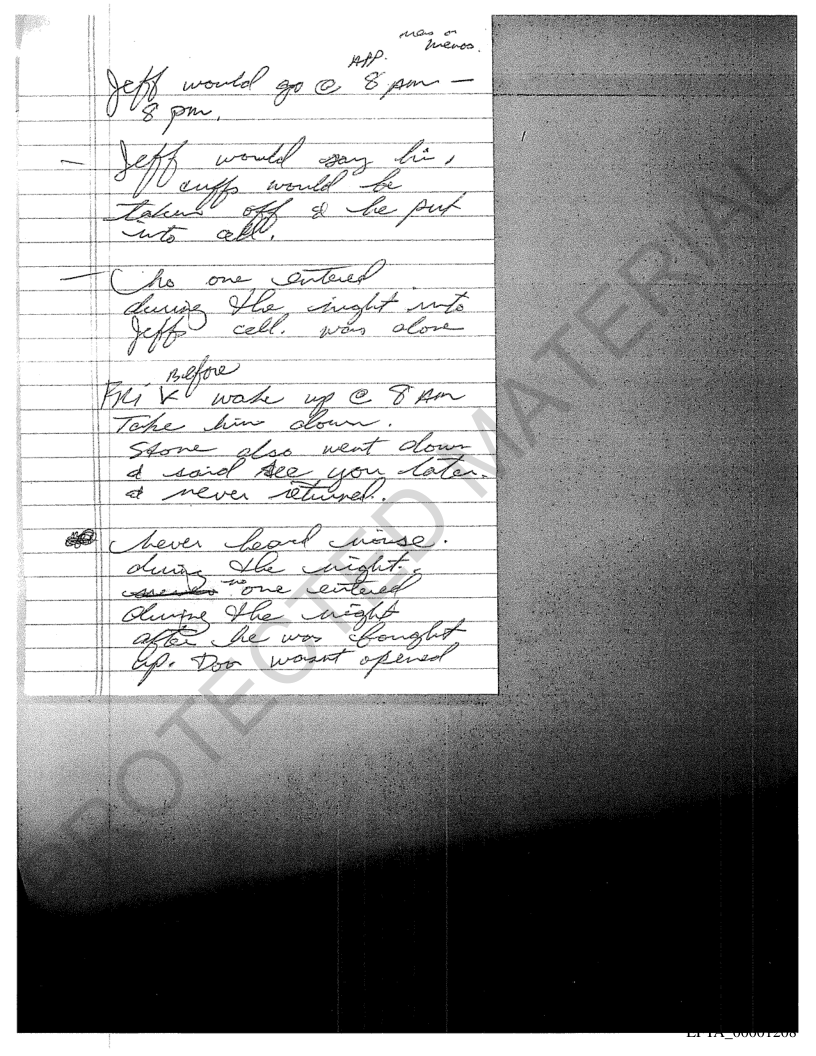 mas o
menos.
APP.
Jeff would go @ 8 Am —
8 pm.
— Jeff would say hi,
cuffs would be
taken off & he put
into cell.
— No one entered
during the night into
Jeffs cell. was alone
Before
FRI wake up @ 8 Am
Take him down.
Stone also went down
& said see you later.
& never returned.
never heard noise.
during the night.
no one entered
during the night
after he was bought
up. Door wasnt opened
PROTECTED MATERIAL
EFTA_00001208